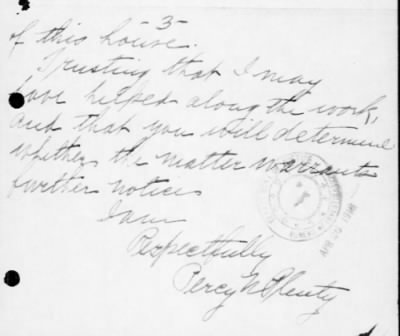 -3-
of this house.
Trusting that I may
have helped along the work,
and that you will determine
whether the matter warrants
further notice
I am
Respectfully
Percy N Plenty
APR 1918